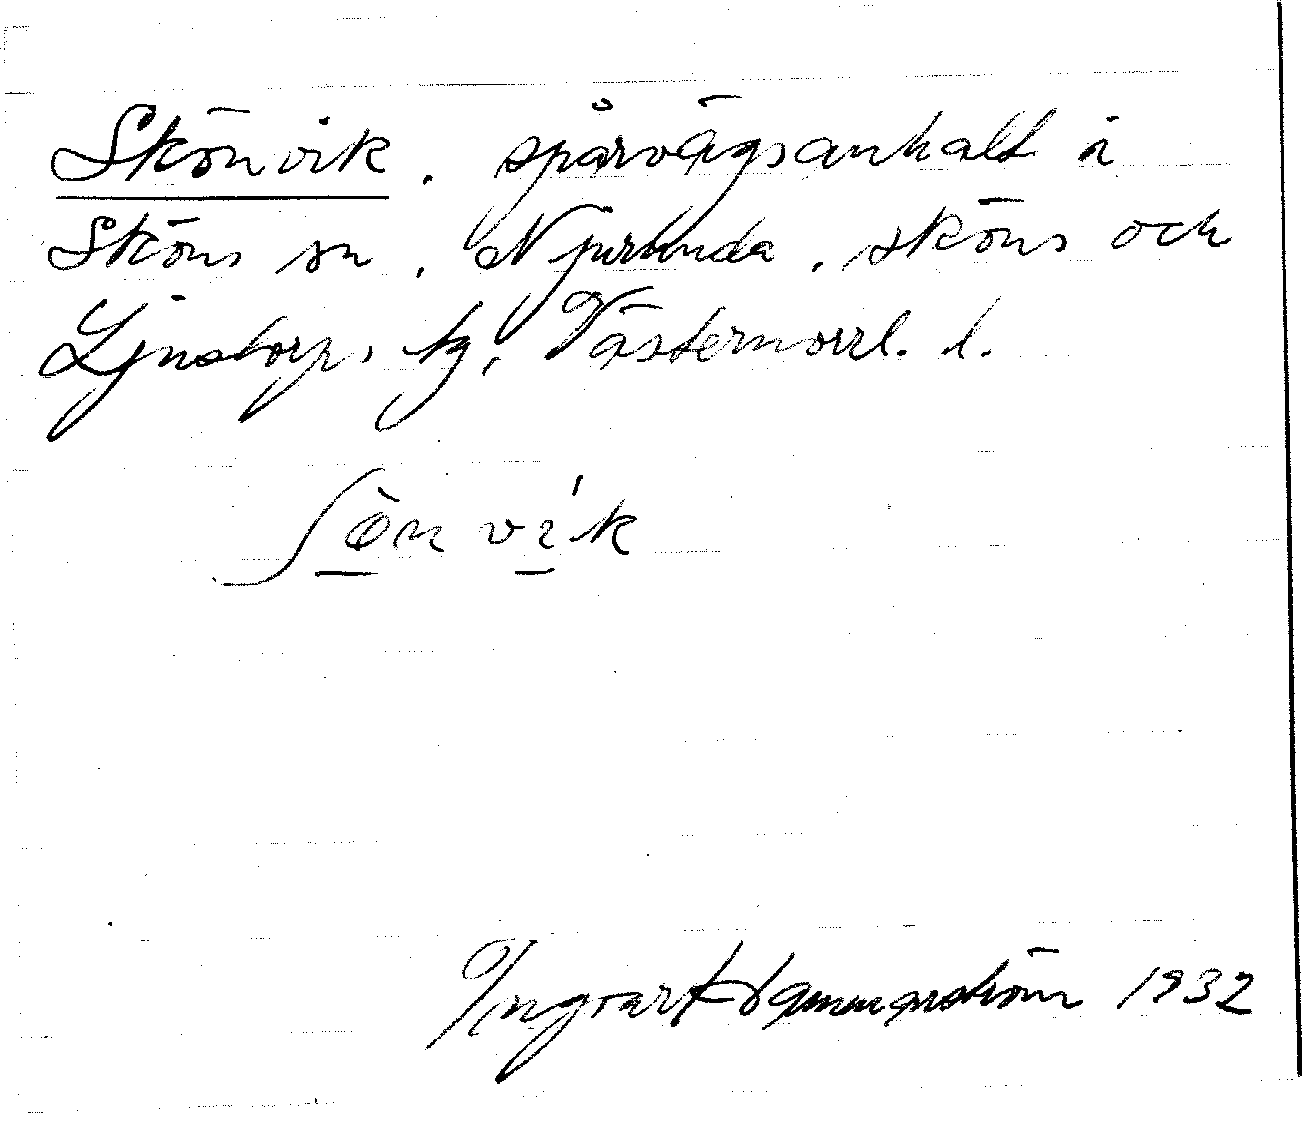 Skönvik. spårvägsanhalt i
Sköns sn. Njurunda, sköns och
Ljustorps tg, Västernorrl. l.
ʃö̀n vík
Ingvar Hammarström 1932